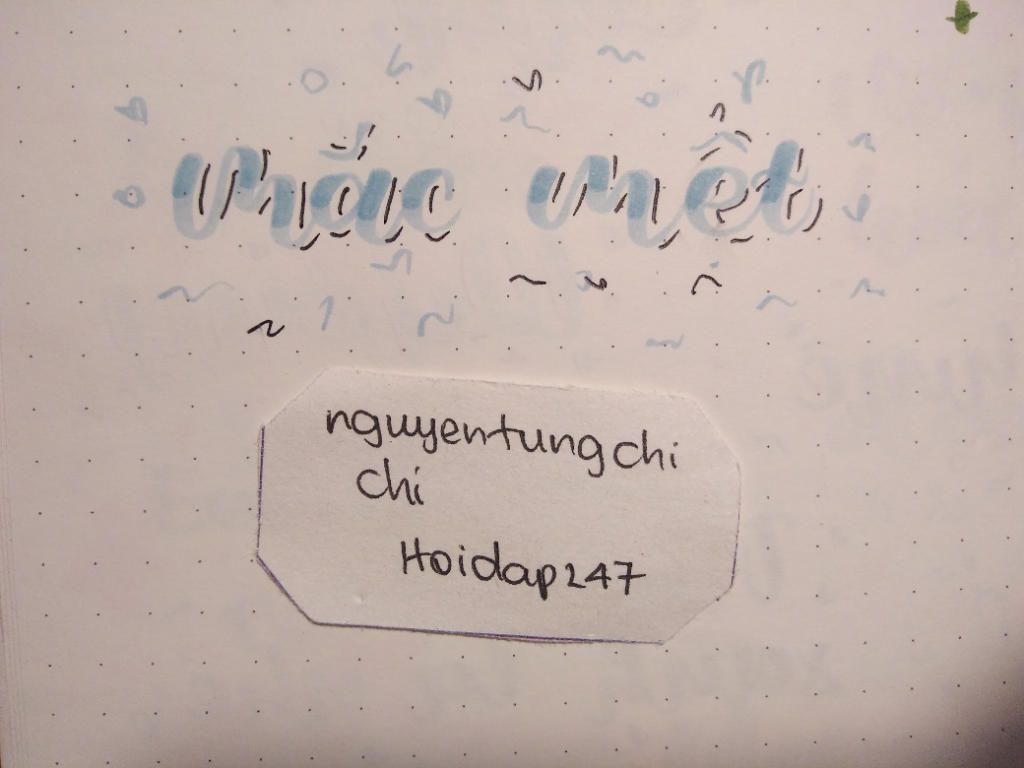 mắc mệt
nguyentungchi
chi
Hoidap247